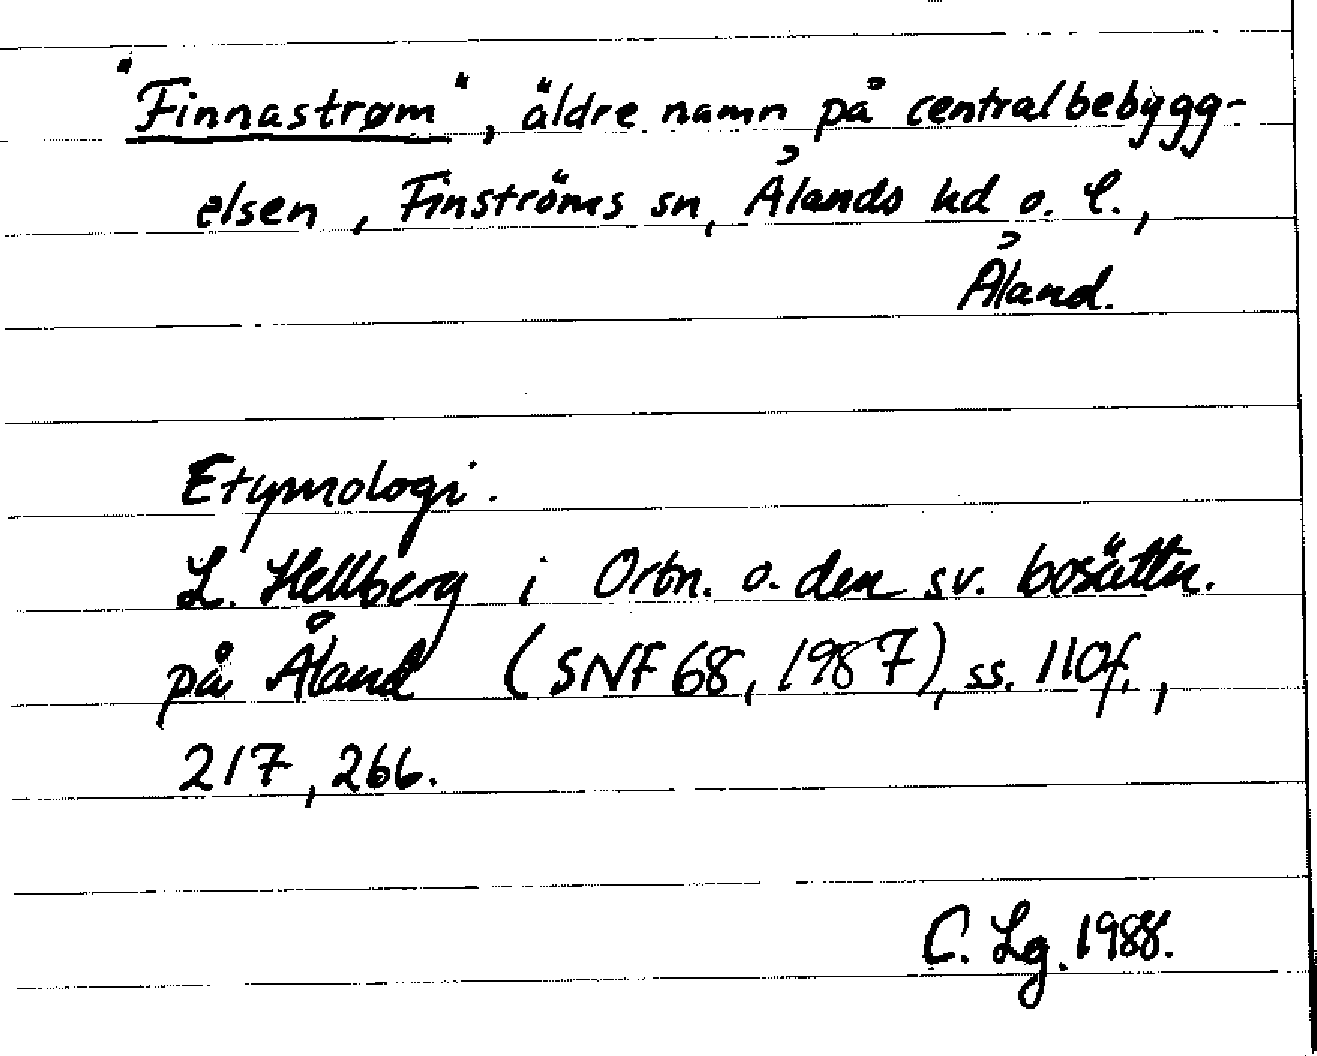 "Finnastrøm", äldre namn på centralbebygg-
elsen, Finströms sn, Ålands hd o. l.,
Åland.
Etymologi.
L. Hellberg i Ortn. o. den sv. bosättn.
på Åland (SNF 68, 1987), ss. 110f.,
217, 266.
C. Lg. 1988.